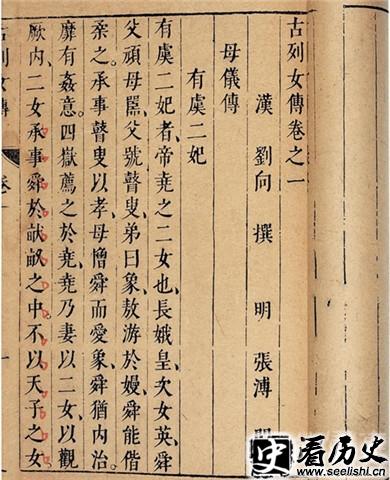 古列女傳卷之一
漢 劉向 撰 明 張溥
母儀傳
有虞二妃
有虞二妃者、帝堯之二女也、長娥皇、次女英、舜
父頑母嚚、父號瞽叟、弟曰象、敖游於嫚、舜能偕
柔之、承事瞽叟以孝、母憎舜而愛象、舜猶内治、
靡有姦意、四嶽薦之於堯、堯乃妻以二女、以觀
厥内、二女承事舜於畎畝之中、不以天子之女
古列女傳 卷一
一
史看历史
www.seelishi.cn